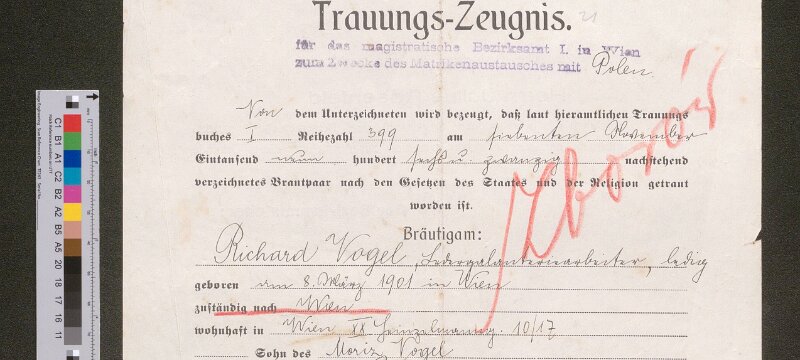 Trauungs-Zeugnis.
für das magistratische Bezirksamt I. in Wien
zum Zwecke des Matrikenaustausches mit Polen
Von dem Unterzeichneten wird bezeugt, daß laut hieramtlichen Trauungs
buches I Reihezahl 399 am siebenten November
Eintausend neun hundert sechs u. zwanzig nachstehend
verzeichnetes Brautpaar nach den Gesetzen des Staates und der Religion getraut
worden ist.
Zborów
Bräutigam:
Richard Vogel, Ledergalanteriearbeiter, ledig
geboren am 8. März 1901 in Wien
zuständig nach Wien
wohnhaft in Wien XX 10/17
Sohn des Moriz Vogel
C1 B1 A1 C2 B2 A2 B5 A5 20 18 17 16 11